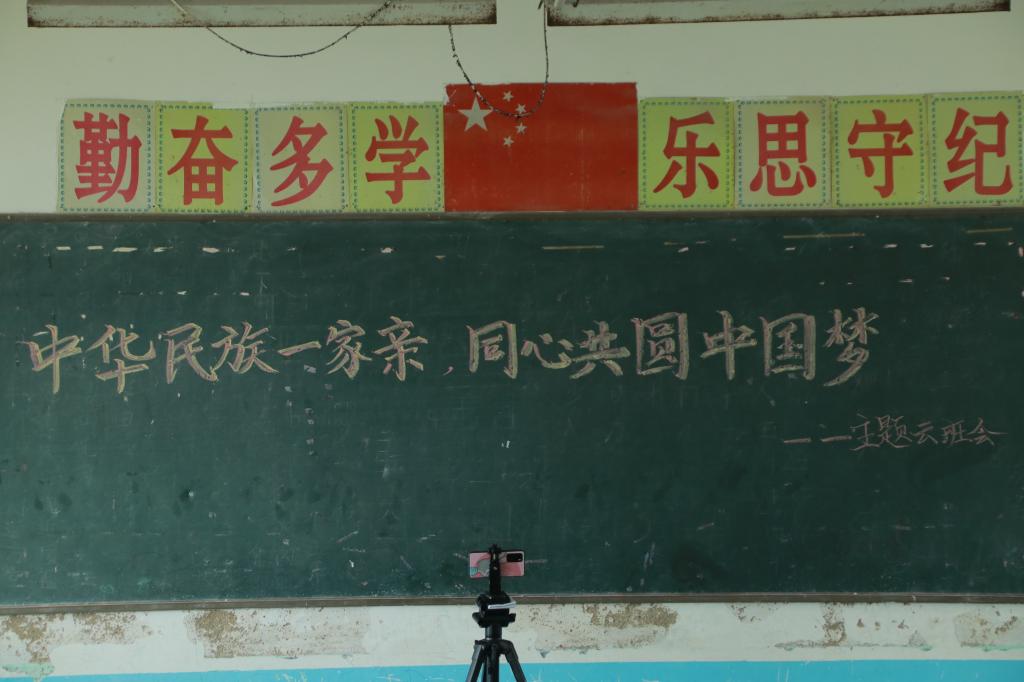 勤奋多学 乐思守纪
中华民族一家亲，同心共圆中国梦
——主题云班会